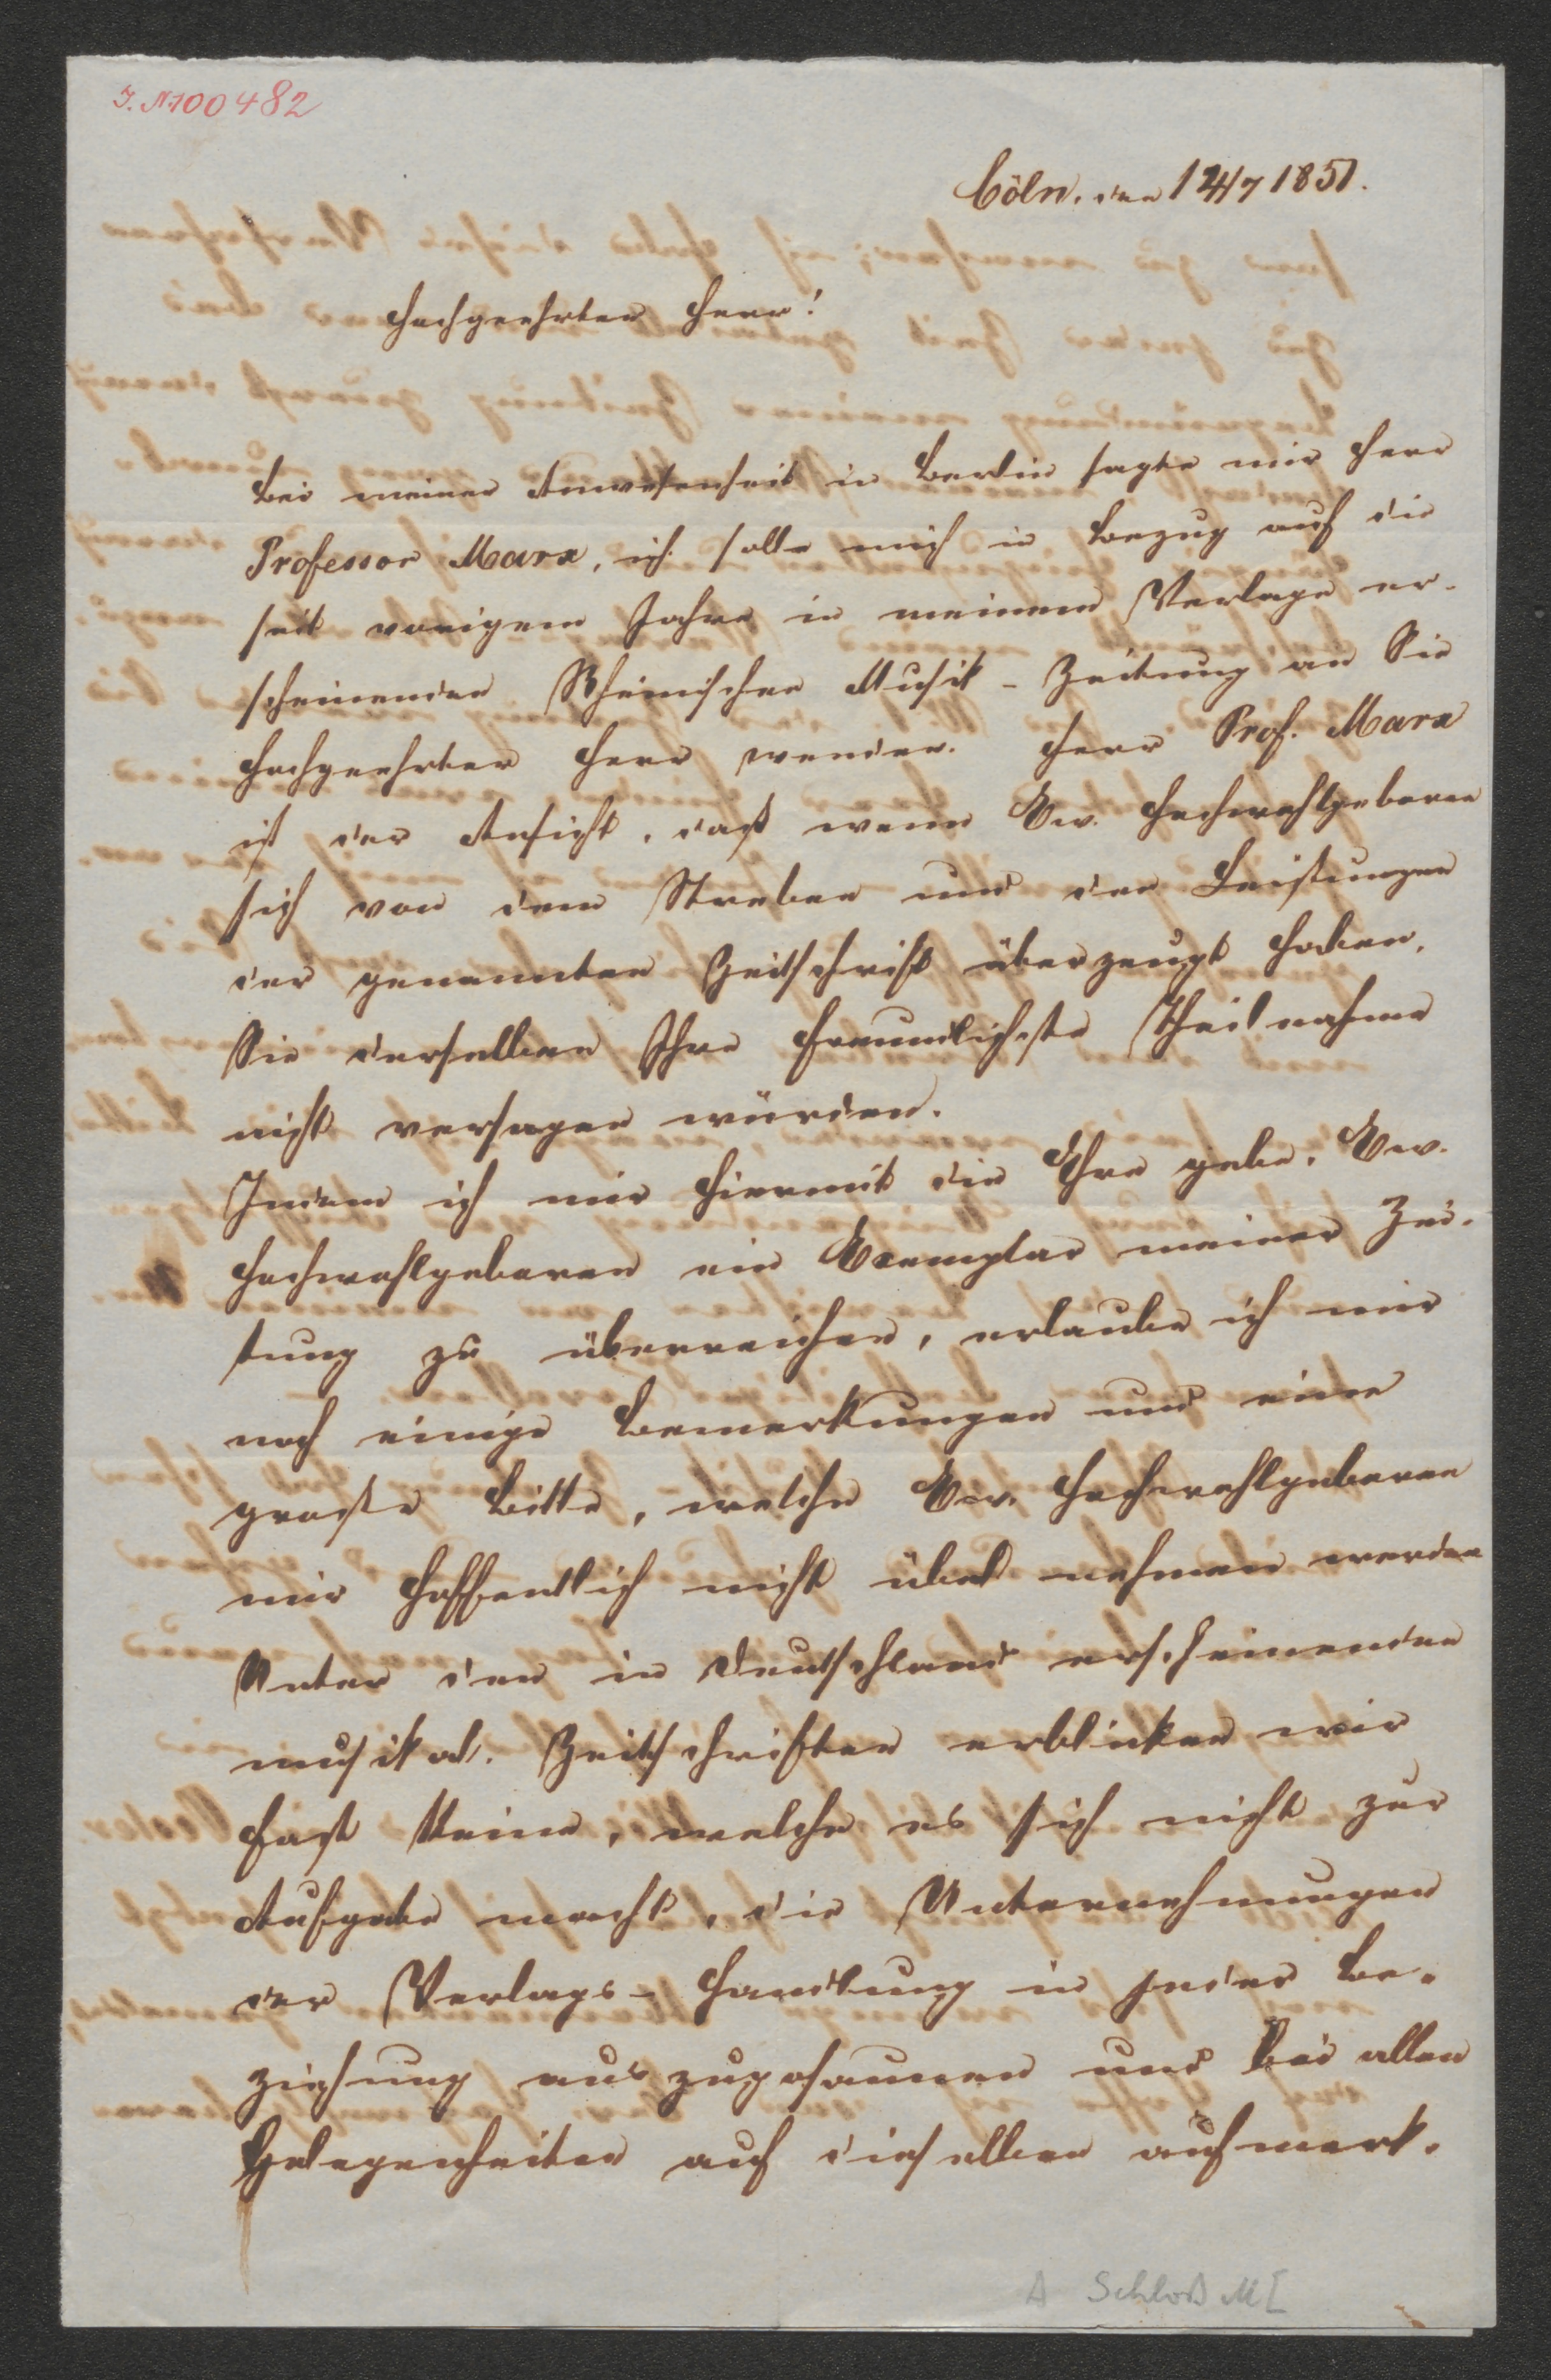 I. N. 100482
Cöln, den 12/7 1851.
Hochgeehrter Herr!
Bei meiner Anwesenheit in Berlin sagte mir Herr
Professor Marx, ich solle mich in Bezug auf die
seit vorigem Jahre in meinem Verlage er-
scheinenden Rheinischen Musik-Zeitung an Sie
hochgeehrter Herr wenden. Herr Prof. Marx
ist der Ansicht, daß wenn Ew. Hochwohlgeboren
sich von dem Streben und den Leistungen
der genannten Zeitschrift überzeugt haben,
Sie derselben Ihre freundlichste Theilnahme
nicht versagen würden.
Indem ich mir hiermit die Ehre gebe, Ew.
Hochwohlgeboren ein Exemplar meiner Zei-
tung zu überreichen, erlaube ich mir
noch einige Bemerkungen und eine
große Bitte, welche Ew. Hochwohlgeboren
mir hoffentlich nicht übel nehmen werden
Unter den in Deutschland erscheinenden
musikal. Zeitschriften erblicken wir
fast keine, welche es sich nicht zur
Aufgabe macht, die Unternehmungen
der Verlags-Handlung in jeder Be-
ziehung auszuposaunen und bei allen
Gelegenheiten auf dieselben aufmerk-
A Schloß M[